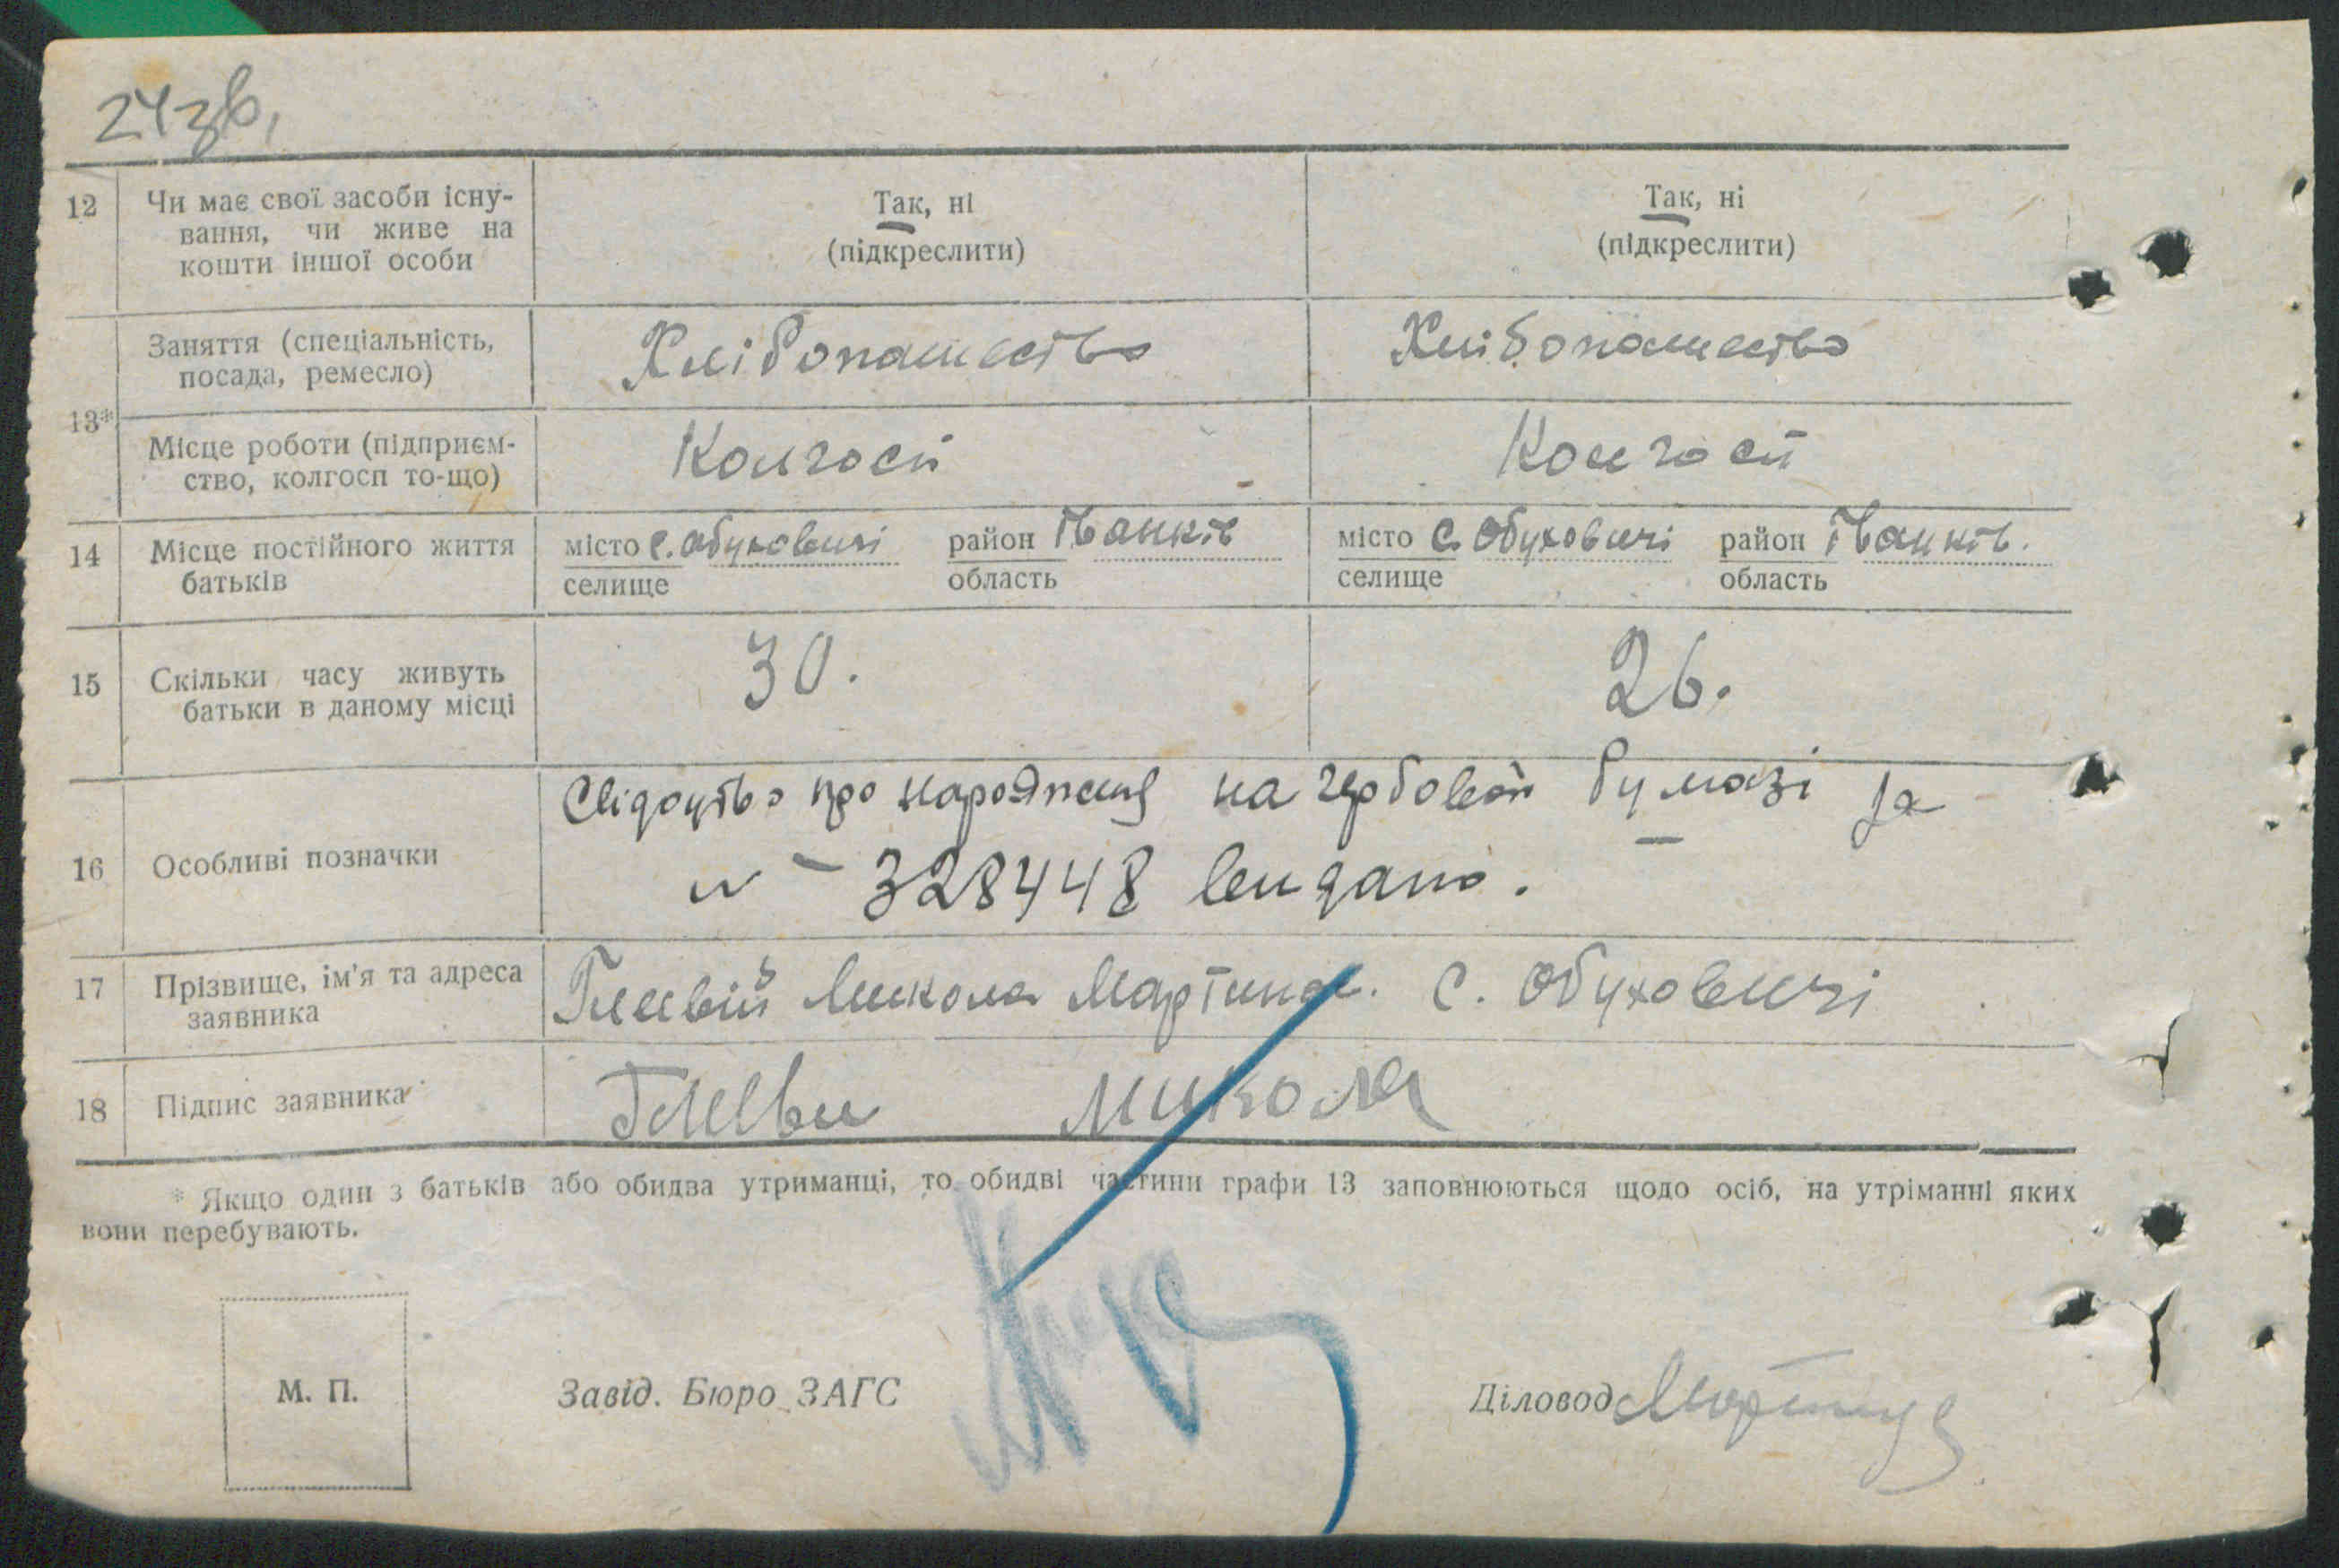 24зв.
12 Чи має свої засоби існу-
вання, чи живе на
кошти іншої особи
Так, ні
(підкреслити)
Так, ні
(підкреслити)
13*
Заняття (спеціальність,
посада, ремесло)
Хлібопашество
Хлібопашество
Місце роботи (підприєм-
ство, колгосп то-що)
Колгосп
Колгосп
14 Місце постійного життя
батьків
місто с. Обуховичі район Іванків
селище область
місто с. Обуховичі район Іванків.
селище область
15 Скільки часу живуть
батьки в даному місці
30.
26.
16 Особливі позначки
Свідоцтво про народження на гербовой бумазі за
№ 328448 видано.
17 Прізвище, ім'я та адреса
заявника
Микола Мартинов. с. Обуховичі
18 Підпис заявника
Микола
* Якщо один з батьків або обидва утриманці, то обидві частини графи 13 заповнюються щодо осіб, на утріманні яких
вони перебувають.
М. П.
Завід. Бюро ЗАГС
Діловод